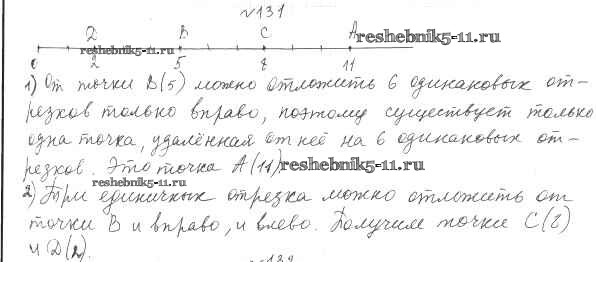 №131
2 B C A
reshebnik5-11.ru
reshebnik5-11.ru
0 2 5 8 11
1) От точки B(5) можно отложить 6 одинаковых от-
резков только вправо, поэтому существует только
одна точка, удалённая от неё на 6 одинаковых от-
резков. Это точка A(11)
reshebnik5-11.ru
reshebnik5-11.ru
2) Три единичных отрезка можно отложить от
точки B и вправо, и влево. Получим точки C(8)
и D(2).